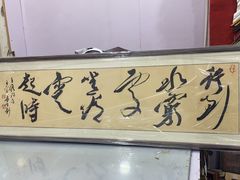 行到
水窮
處
坐看
雲
起時